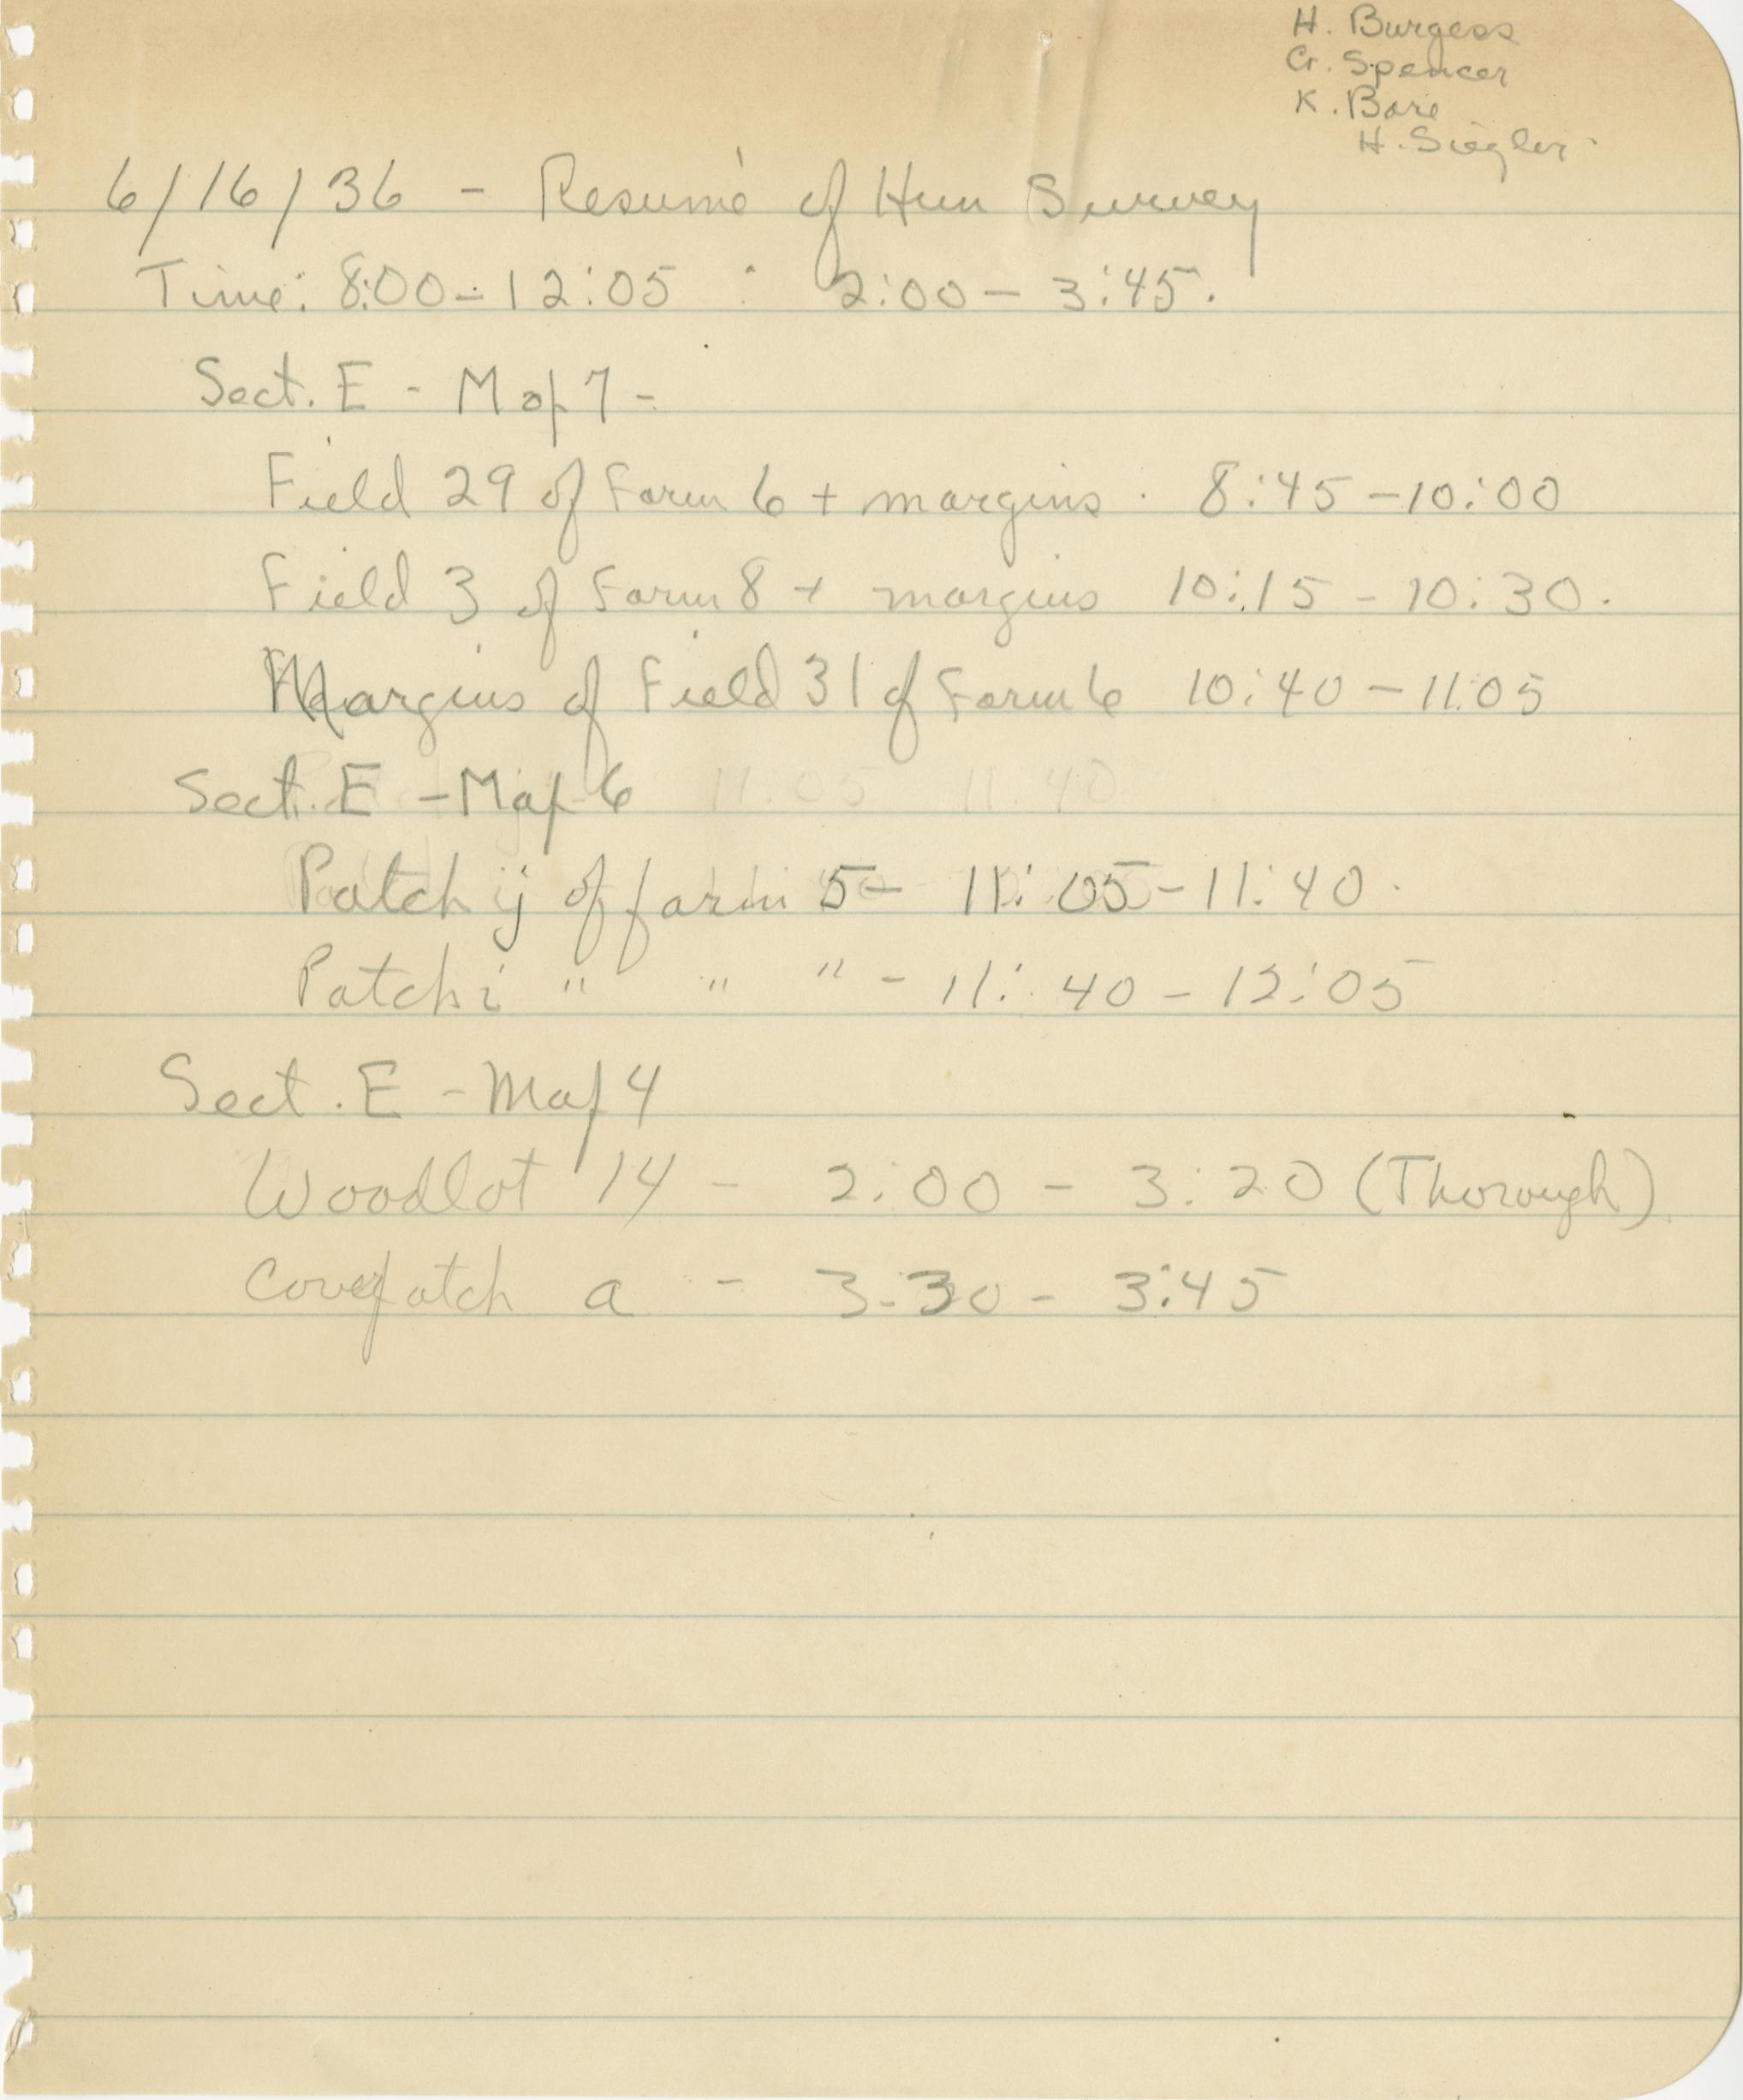 H. Burgess
G. Spencer
K. Bare
H. Siegler
6/16/36 - Resumé of Hun Survey
Time: 8:00 - 12:05 : 2:00 - 3:45.
Sect. E - Map 7 -
Field 29 of Farm 6 + margins . 8:45 - 10:00
Field 3 of Farm 8 + margins 10:15 - 10:30.
Margins of Field 31 of Farm 6 10:40 - 11:05
Sect. E - Map 6
Patch j of farm 5 - 11:05 - 11:40.
Patch i " " " - 11:40 - 12:05
Sect. E - Map 4
Woodlot 14 - 2:00 - 3:20 (Thorough)
Coverpatch a - 3:30 - 3:45